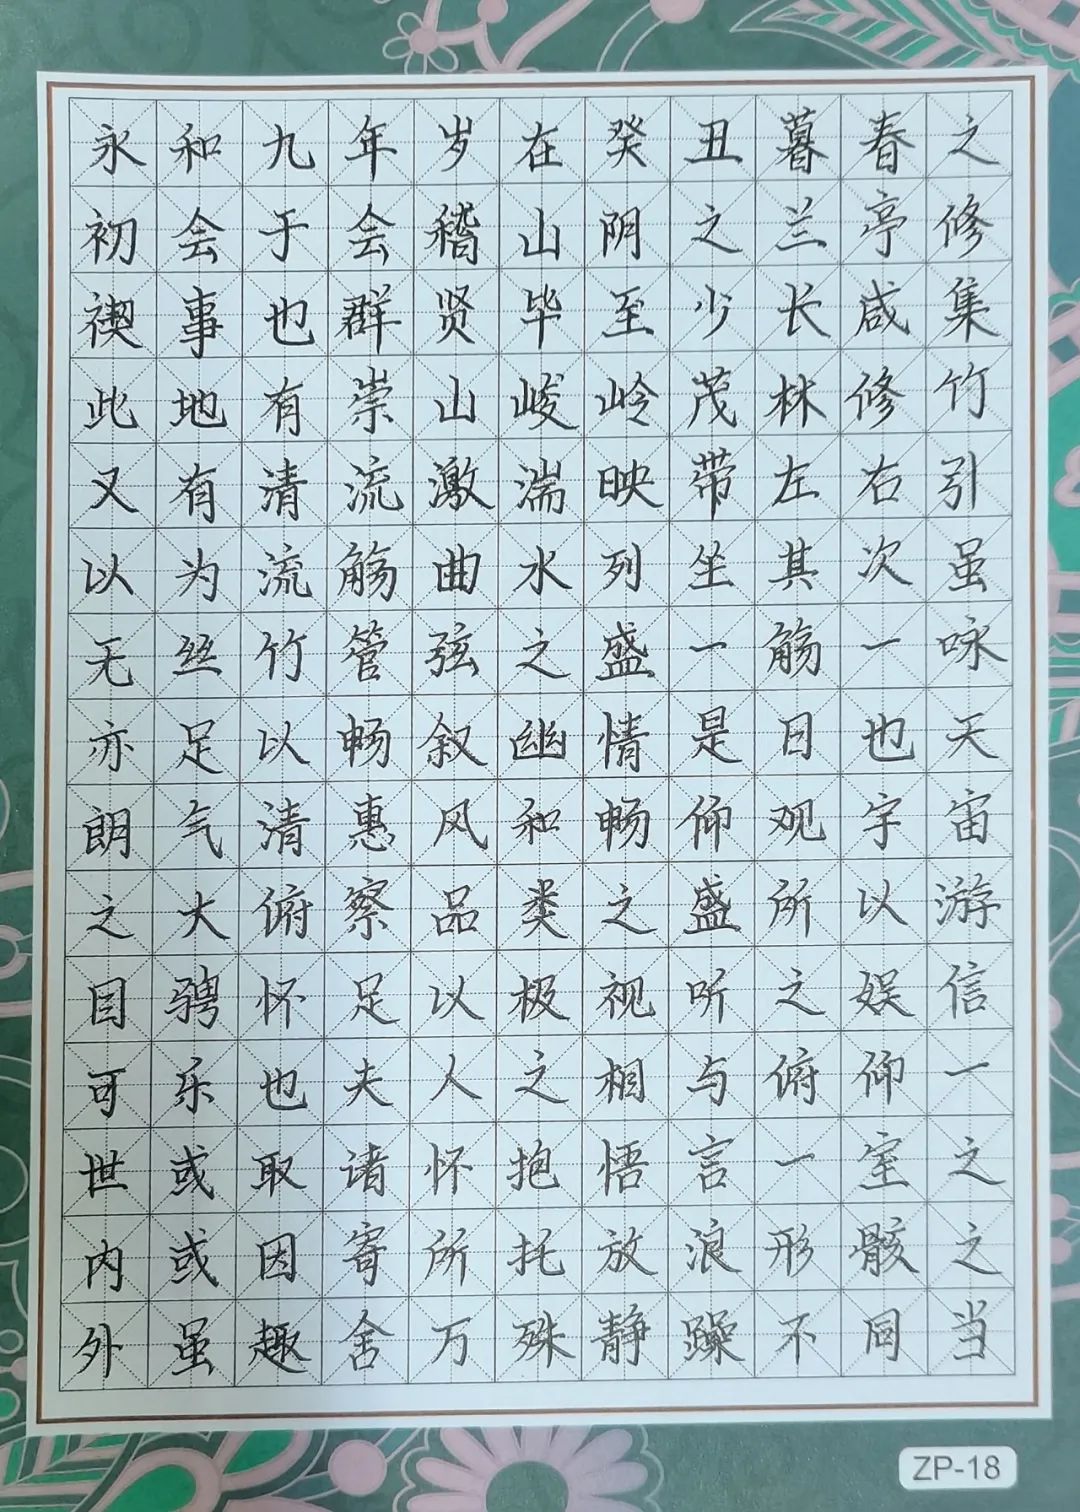 永和九年岁在癸丑暮春之
初会于会稽山阴之兰亭修
禊事也群贤毕至少长咸集
此地有崇山峻岭茂林修竹
又有清流激湍映带左右引
以为流觞曲水列坐其次虽
无丝竹管弦之盛一觞一咏
亦足以畅叙幽情是日也天
朗气清惠风和畅仰观宇宙
之大俯察品类之盛所以游
目骋怀足以极视听之娱信
可乐也夫人之相与俯仰一
世或取诸怀抱悟言一室之
内或因寄所托放浪形骸之
外虽趣舍万殊静躁不同当
ZP-18